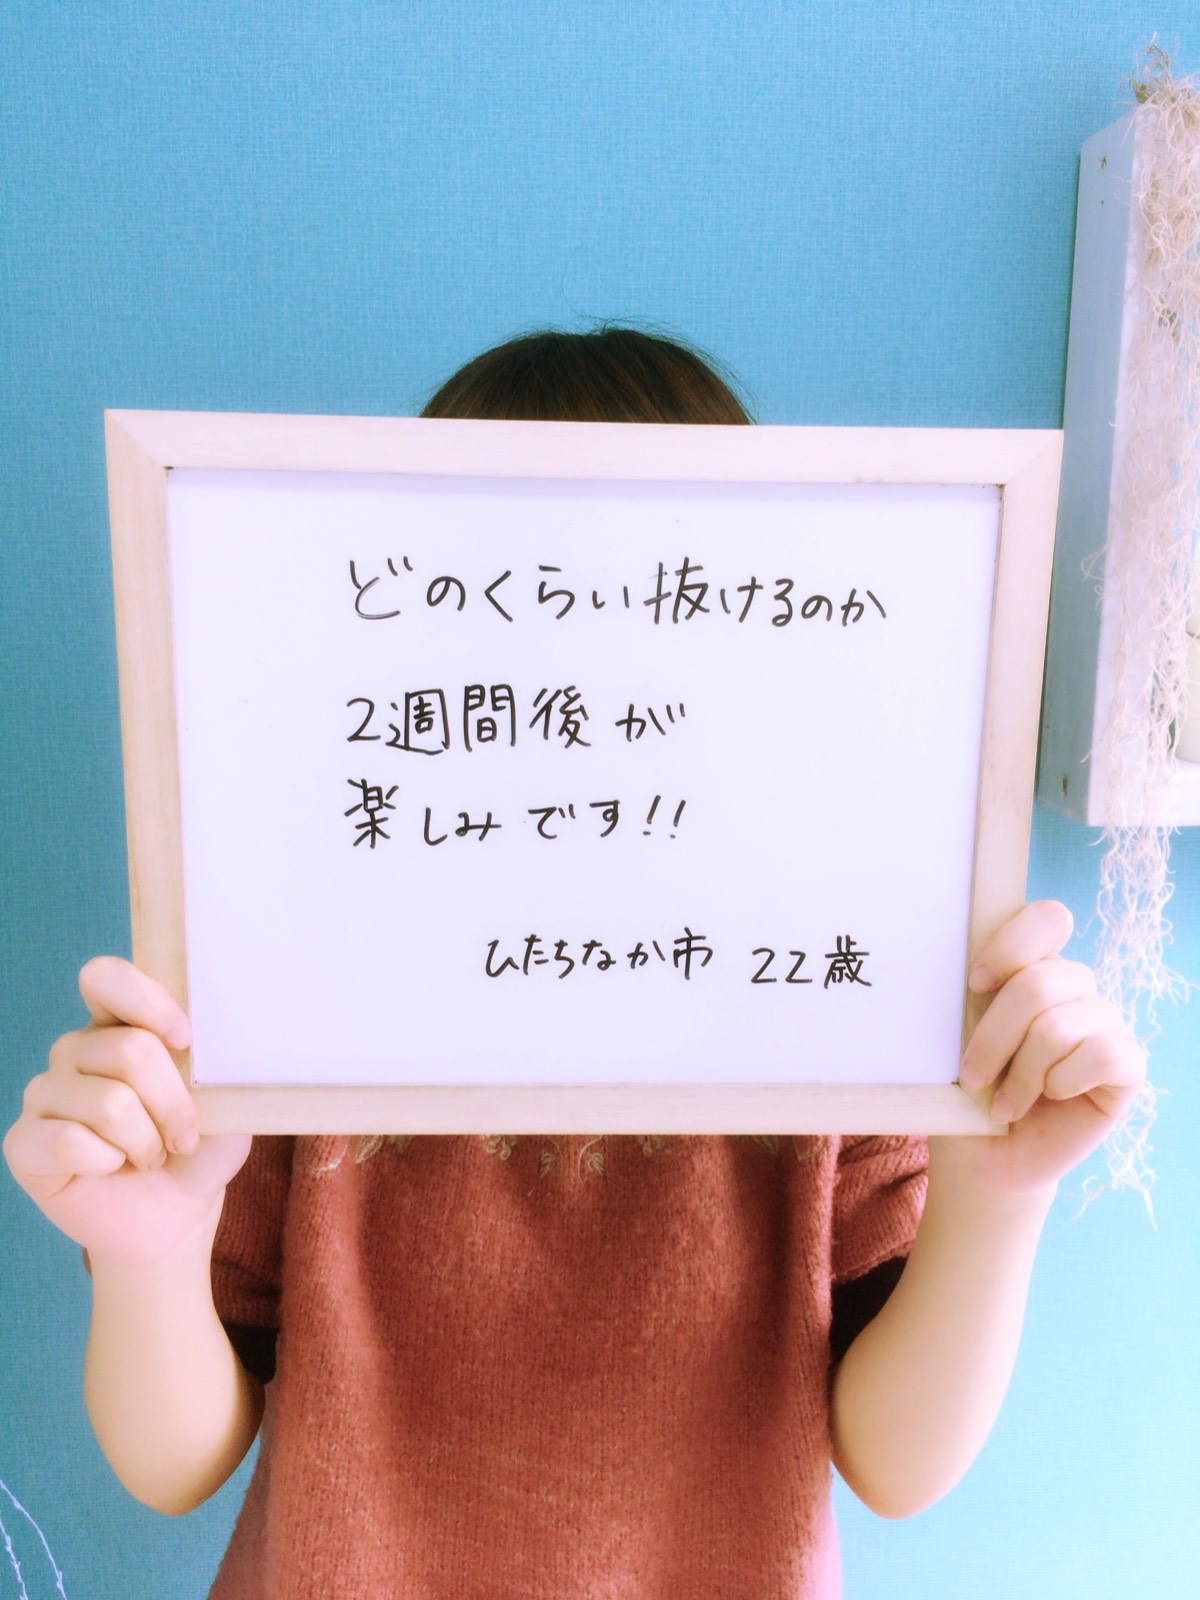 どのくらい抜けるのか
2週間後が
楽しみです!!
ひたちなか市 22歳